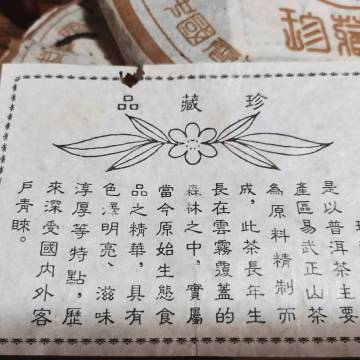 珍藏品
是以普洱茶主要
產區易武正山茶
為原料精制而
成，此茶長年生
長在雲霧覆蓋的
森林之中，實屬
當今原始生態食
品之精華，具有
色澤明亮、滋味
淳厚等特點，歷
來深受國內外客
戶青睞。
中國
珍藏